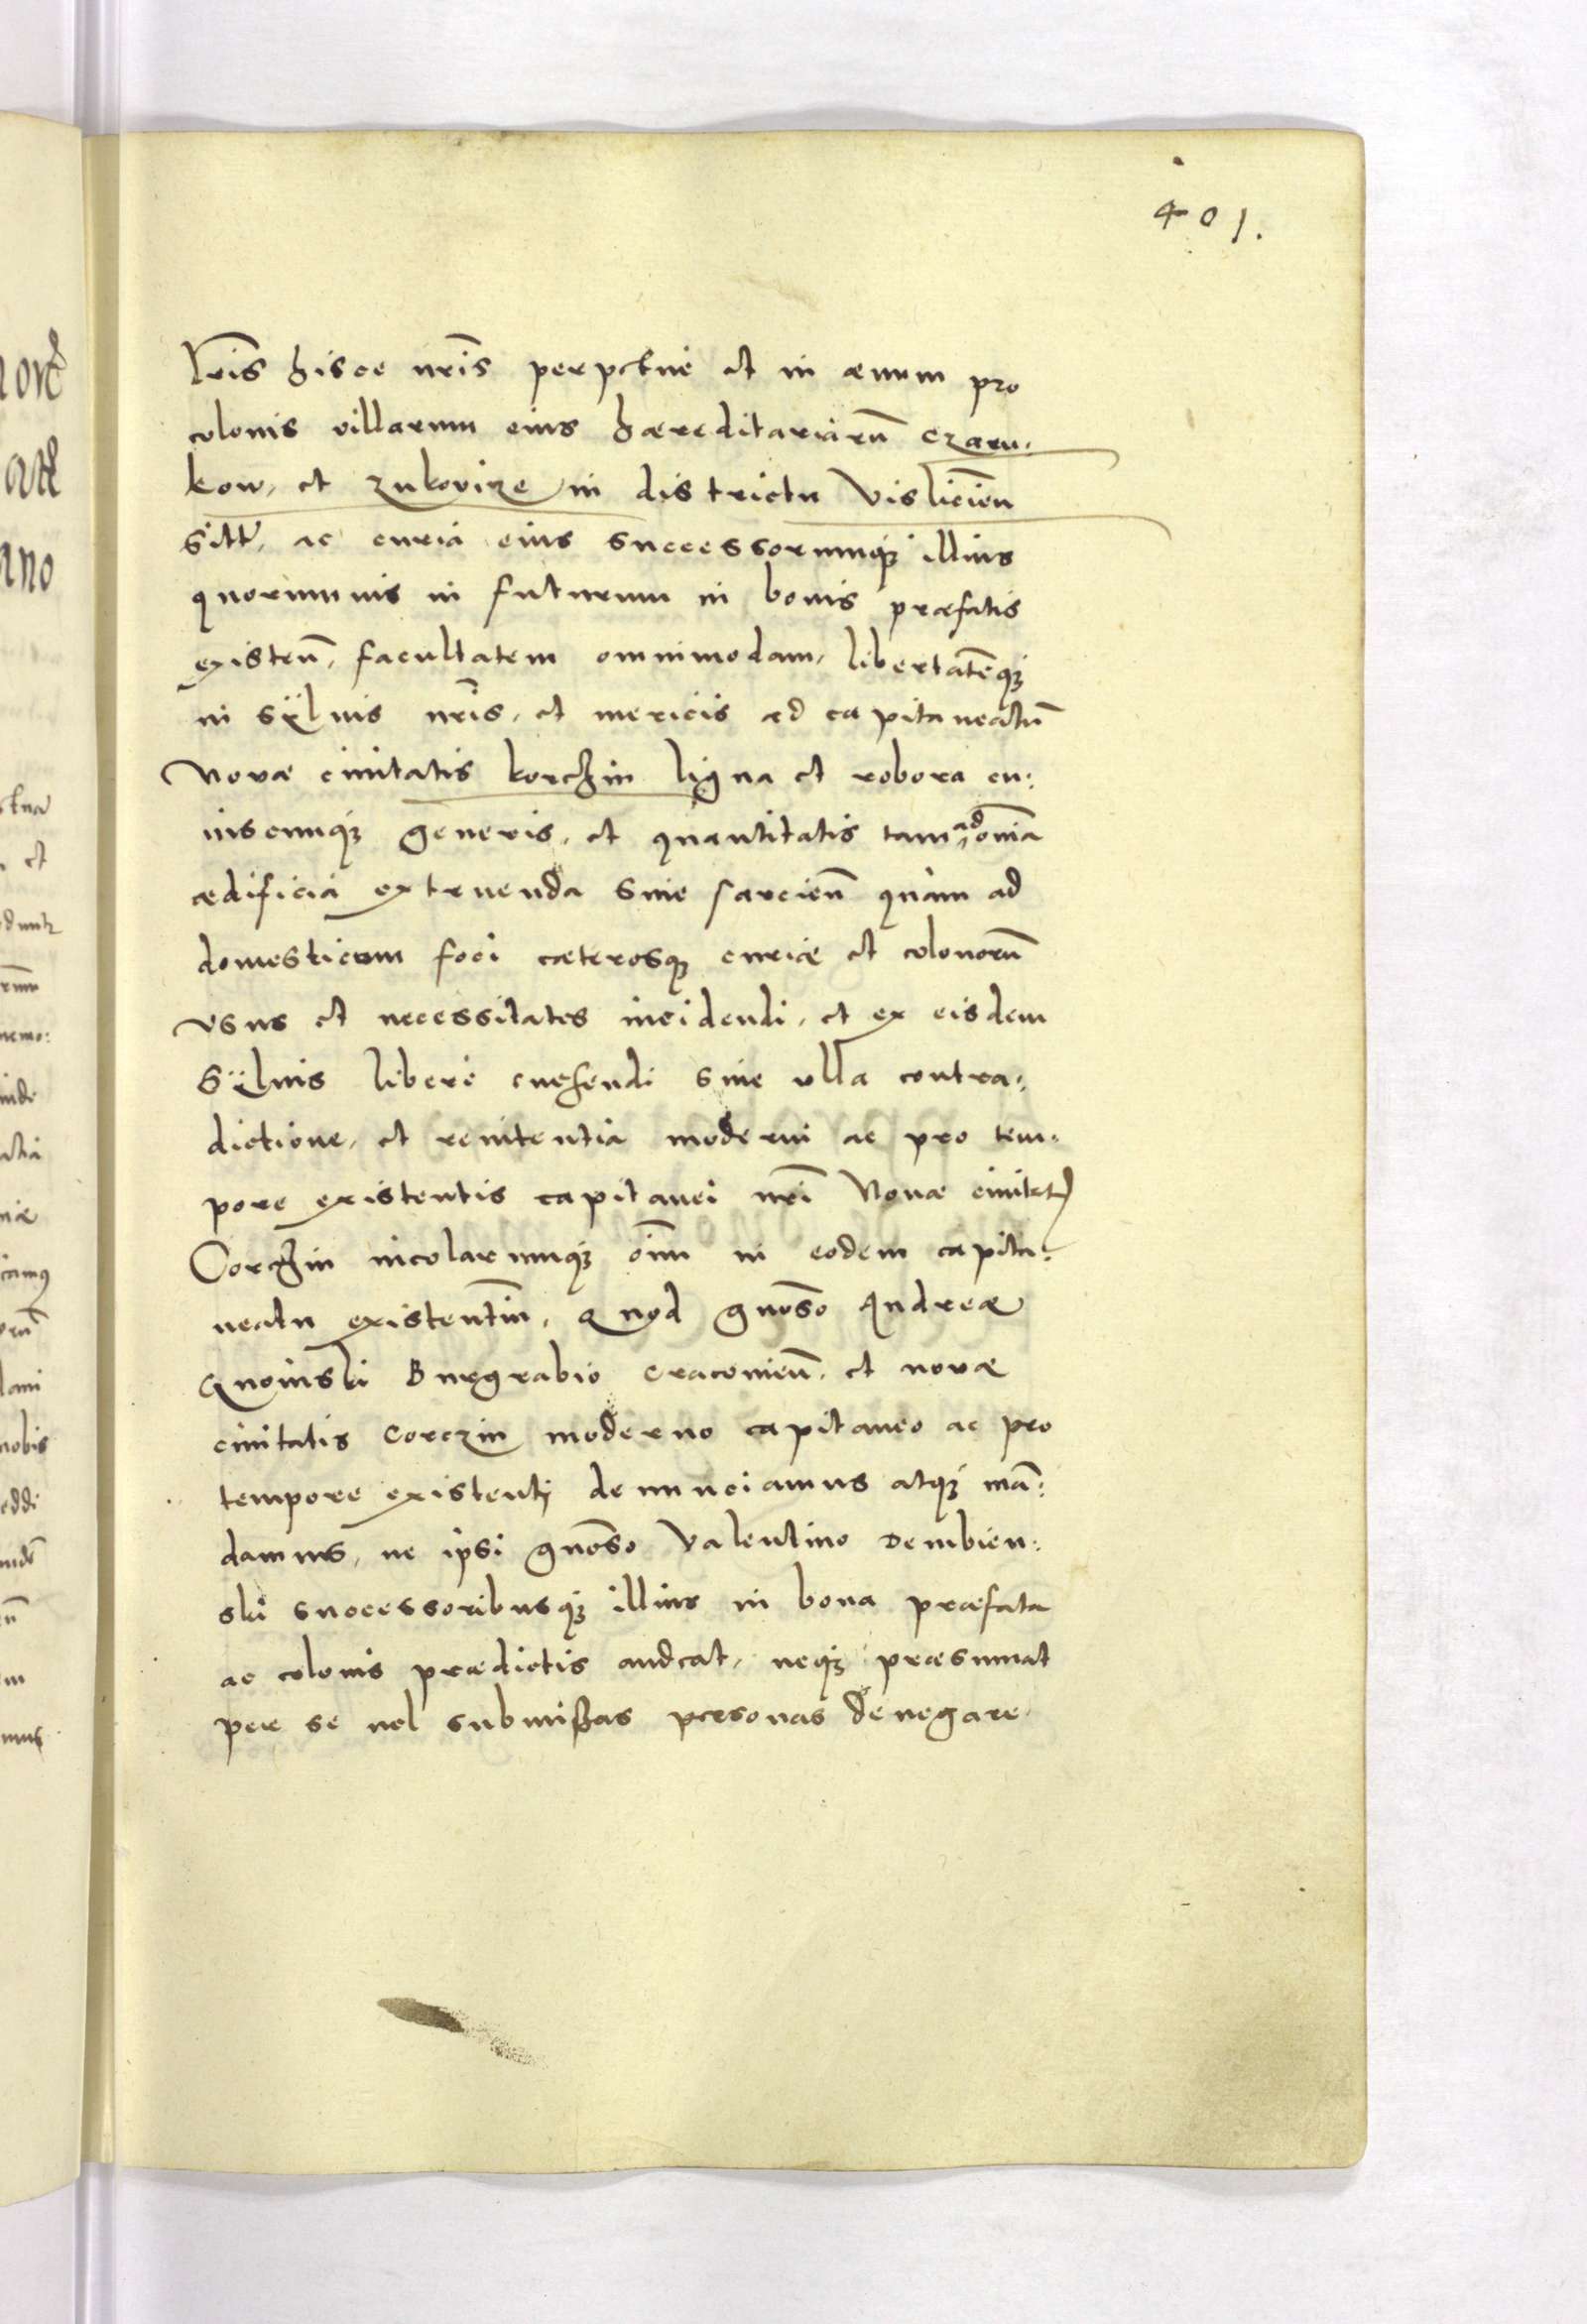 401.
lr̃is hisce nr̃is perpetue et in aeuum pro
colonis villarum eius haereditariarũ Czaru-
kow, et Zukovize in districtu Visliciẽn
sitt, ac curia eius successorumq̃ illius
quorumuis in futurum in bonis praefatis
existeñ, facultatem omnimodam, libertatẽq̃
in syluis nr̃is, et mericis ad capitaneatũ
Novae ciuitatis korchin ligna et robora cu:
iuscunq̃ generis, et quantitatis tam ad om̃ia
aedificia extruenda siue sarcieñ quam ad
domesticum foci caeterosq̃ curiae et colonorũ
vsus et necessitates incidendi, et ex eisdem
syluis libere euehendi sine ulla contra-
dictione, et renitentia moderni ac pro tem-
pore existentis capitanei nr̃i Nouae ciuitatis
Corchin incolarumq̃ oĩm in eodem capita-
neatu existentĩu, Quod gnõso Andreae
Gnoinski Burgrabio Cracovieñ, et novae
ciuitatis Corczin moderno capitaneo ac pro
tempore existenti denunciamus atq̃ mã:
damus, ne ipsi gnõso Valentino Dembien:
ski successoribusq̃ illius in bona praefata
ac colonis praedictis audeat, neq̃ praesumat
per se uel submißas personas denegare